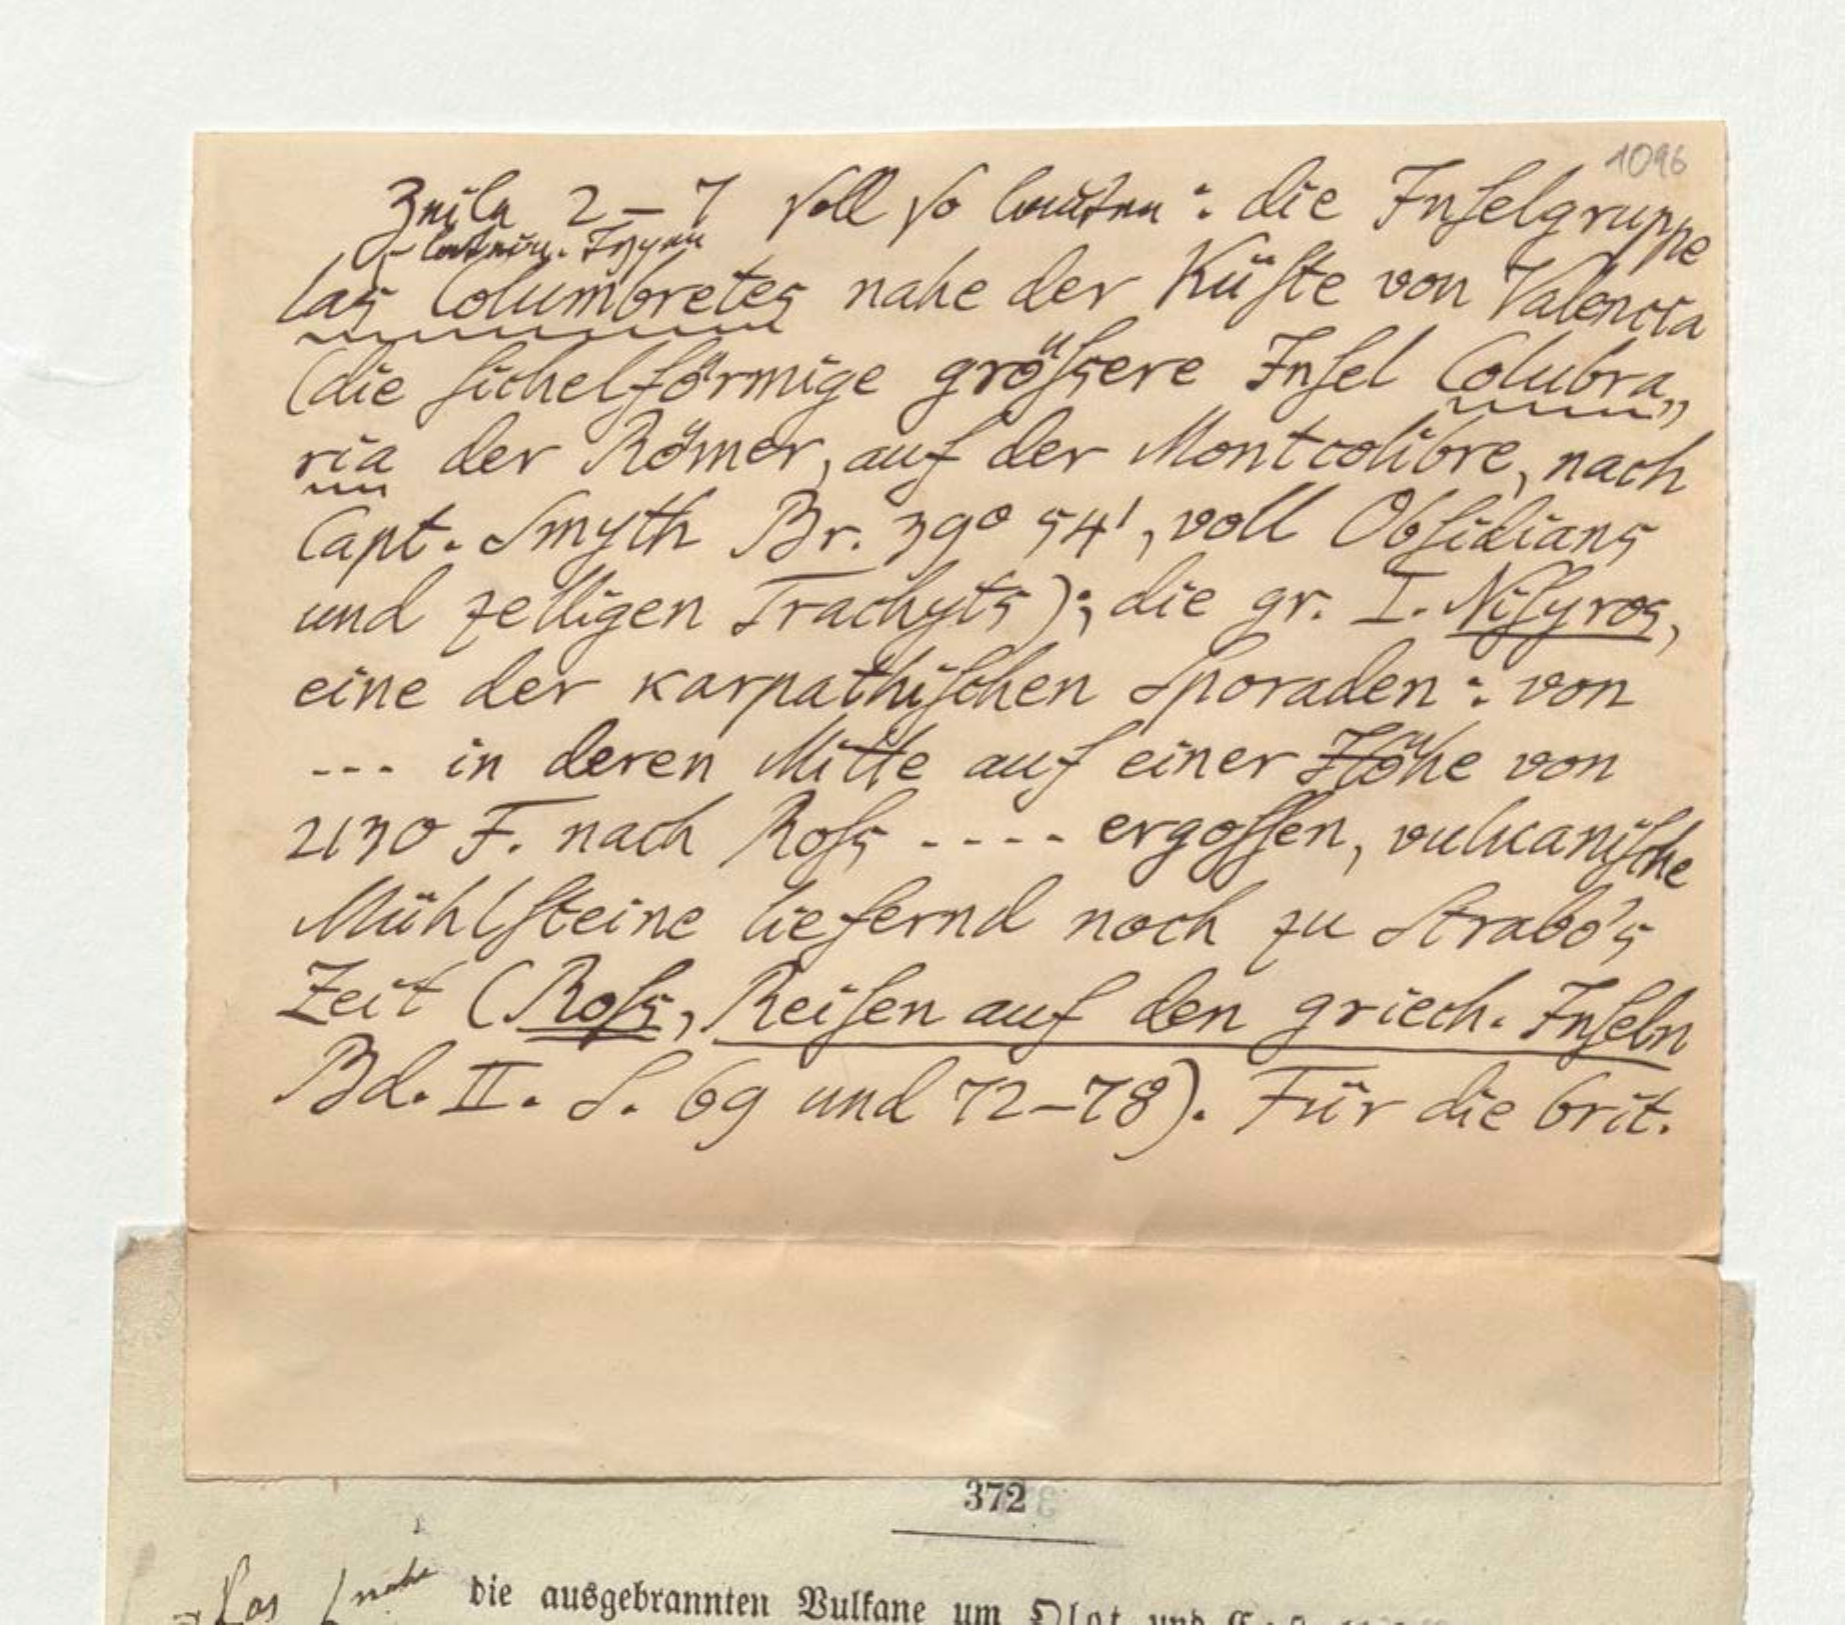 1096
Zeile 2–7 soll so lauten: die Inſelgruppe
latein. Typen
las Columbretes nahe der Küſte von Valencia
(die ſichelförmige gröſsere Inſel Colubra„
ria der Römer, auf der Montcolibre, nach
Capt. Smyth Br. 39° 54', voll Obſidians
und zelligen Trachyts); die gr. I. Niſyros,
eine der karpathiſchen Sporaden: von
--- in deren Mitte auf einer Höhe von
2130 F. nach Roſs ---- ergoſſen, vulcaniſche
Mühlſteine liefernd noch zu Strabo's
Zeit (Roſs, Reiſen auf den griech. Inſeln
Bd. II. S. 69 und 72–78). Für die brit.
372
Las nahe die ausgebrannten Vulkane um Olot und